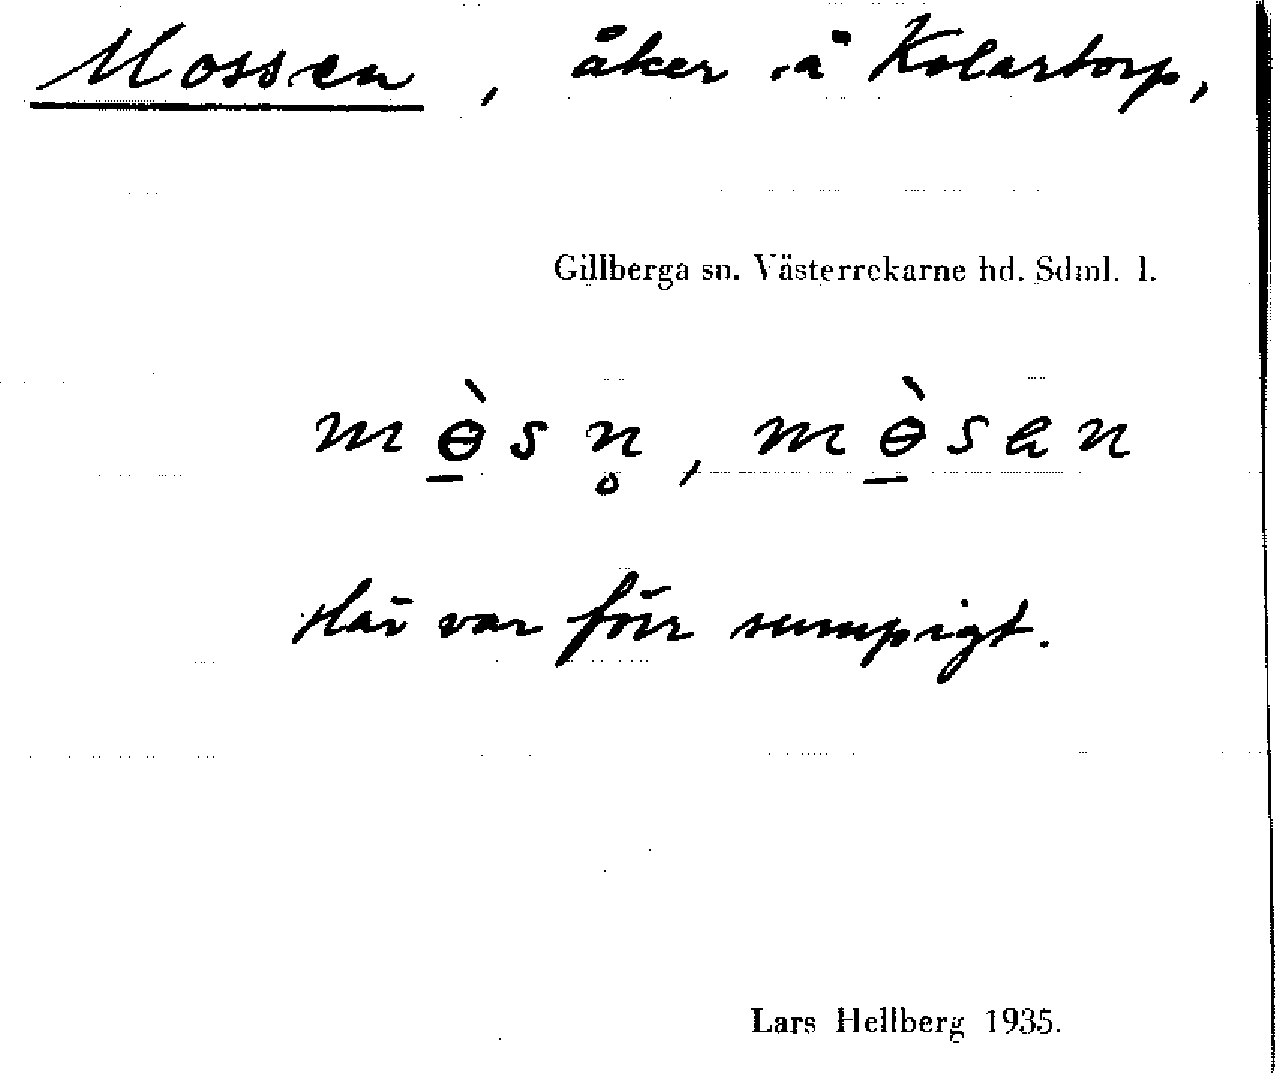 Mossen, åker å Kolartorp,
Gillberga sn. Västerrekarne hd. Sdml. l.
mɵ̠̀sn̥, mɵ̠̀san
Här var förr sumpigt.
Lars Hellberg 1935.